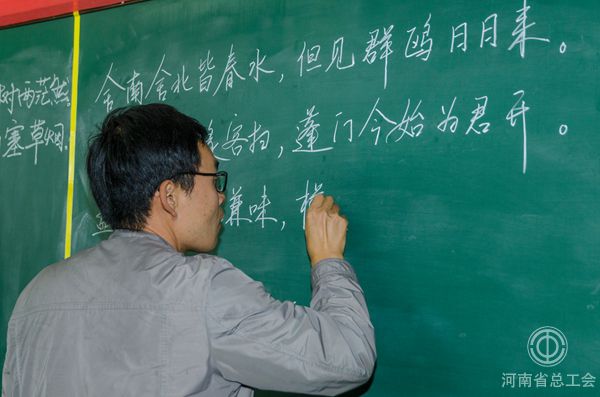 舍南舍北皆春水，但见群鸥日日来。
客扫，蓬门今始为君开。
兼味，樽
对两茫然
塞草烟.
河南省总工会